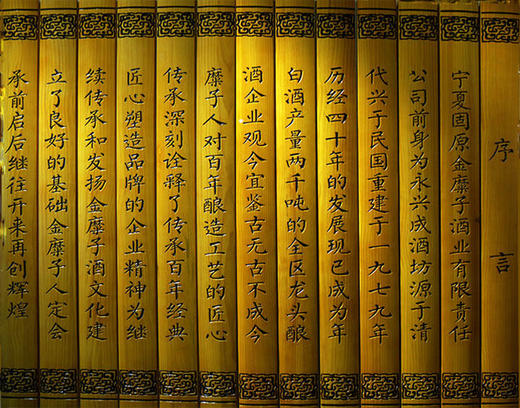 序言
宁夏固原金糜子酒业有限责任
公司前身为永兴成酒坊源于清
代兴于民国重建于一九七九年
历经四十年的发展现已成为年
白酒产量两千吨的全区龙头酿
酒企业观今宜鉴古无古不成今
糜子人对百年酿造工艺的匠心
传承深刻诠释了传承百年经典
匠心塑造品牌的企业精神为继
续传承和发扬金糜子酒文化建
立了良好的基础金糜子人定会
承前启后继往开来再创辉煌